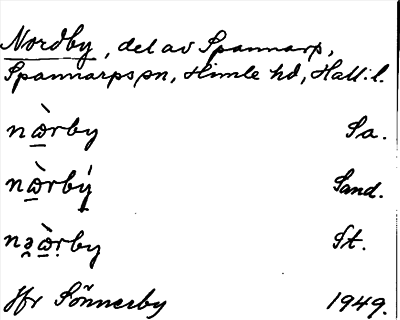 Nordby, del av Spannarp,
Spannarps sn, Himle hd, Hall. l.
næ̀rby Sa.
næ̀rbý Sand.
nə̯æ̀ṛby St.
Jfr Sönnerby 1949.